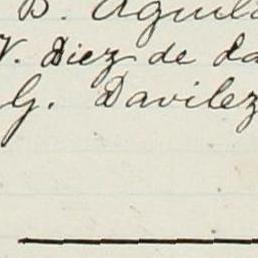 B. Aguil
V. Diez de la
G. Davilez